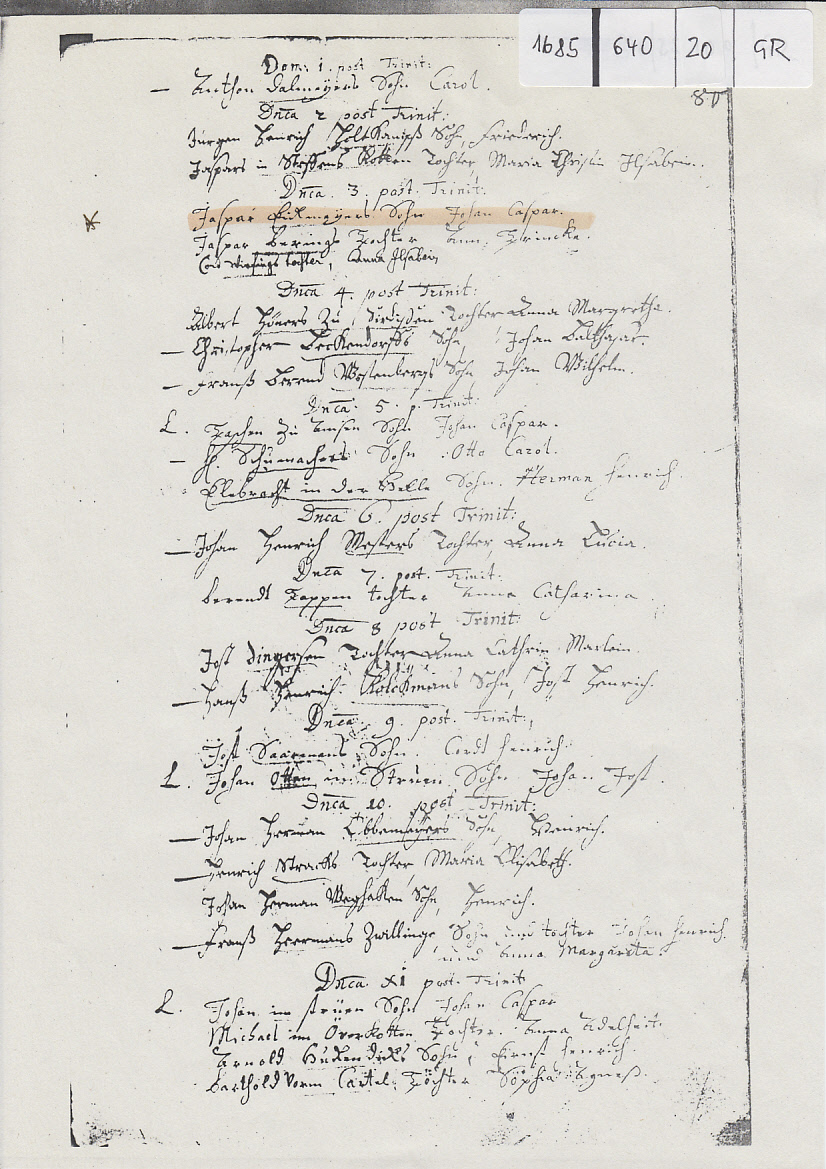 1685 640 20 GR
80
Dom: 1. post Trinit:
— Anthon Dalmeyers Sohn Carol.
Dnca 2 post Trinit:
Jürgen Henrich Sohn, Friederich.
Jaspars in Steffens Kotten Tochter, Maria Christin Ilsabein.
Dnca. 3. post. Trinit:
Jaspar Eickmeyers Sohn Johan Caspar.
Jaspar Berings Tochter Ann. Trincke.
Cord tochter, Anna Ilsabein
Dnca 4. post Trinit:
Albert Höners Zu Tochter Anna Margretha.
— Christopher Beckendorffs Sohn, Johan Balthasar.
— Franß Berend Westenbergs Sohn Johan Wilhelm.
Dnca. 5. p. Trinit:
L. Zu Sohn Johan Caspar.
— H. Schumachers Sohn Otto Carol.
Ellebracht in der Sohn. Herman Henrich.
Dnca 6. post Trinit:
— Johan Henrich Meyers Tochter Anna Lucia.
Dnca 7. post. Trinit:
Berendt Tappen tochter Anna Catharina
Dnca 8 post Trinit:
Jost Dingersen Tochter Anna Cathrin Marlein.
— Hanß Henrich Kölckmans Sohn, Jost Henrich.
Dnca. 9. post. Trinit:
Jost Saarmans Sohn. Cordt Henrich.
L. Johan Otten im Struen Sohn Johan Jost.
Dnca 10. post Trinit:
— Johan Herman Ebbemeyers Sohn, Heinrich.
— Henrich Stracks Tochter, Maria Elisabeth.
Johan Herman Sohn, Henrich.
— Franß Heermans Zwillinge Sohn und tochter Johan Henrich
und Anna Margareta.
Dnca XI post. Trinit
L. Johan im strüen Sohn Johan Caspar
Michael im Overkotten Tochter. Anna Adelheit.
Arnold Hukendicks Sohn, Ernst Henrich.
Barthold Vorm Cartel. Töchter Sophia Agneß.